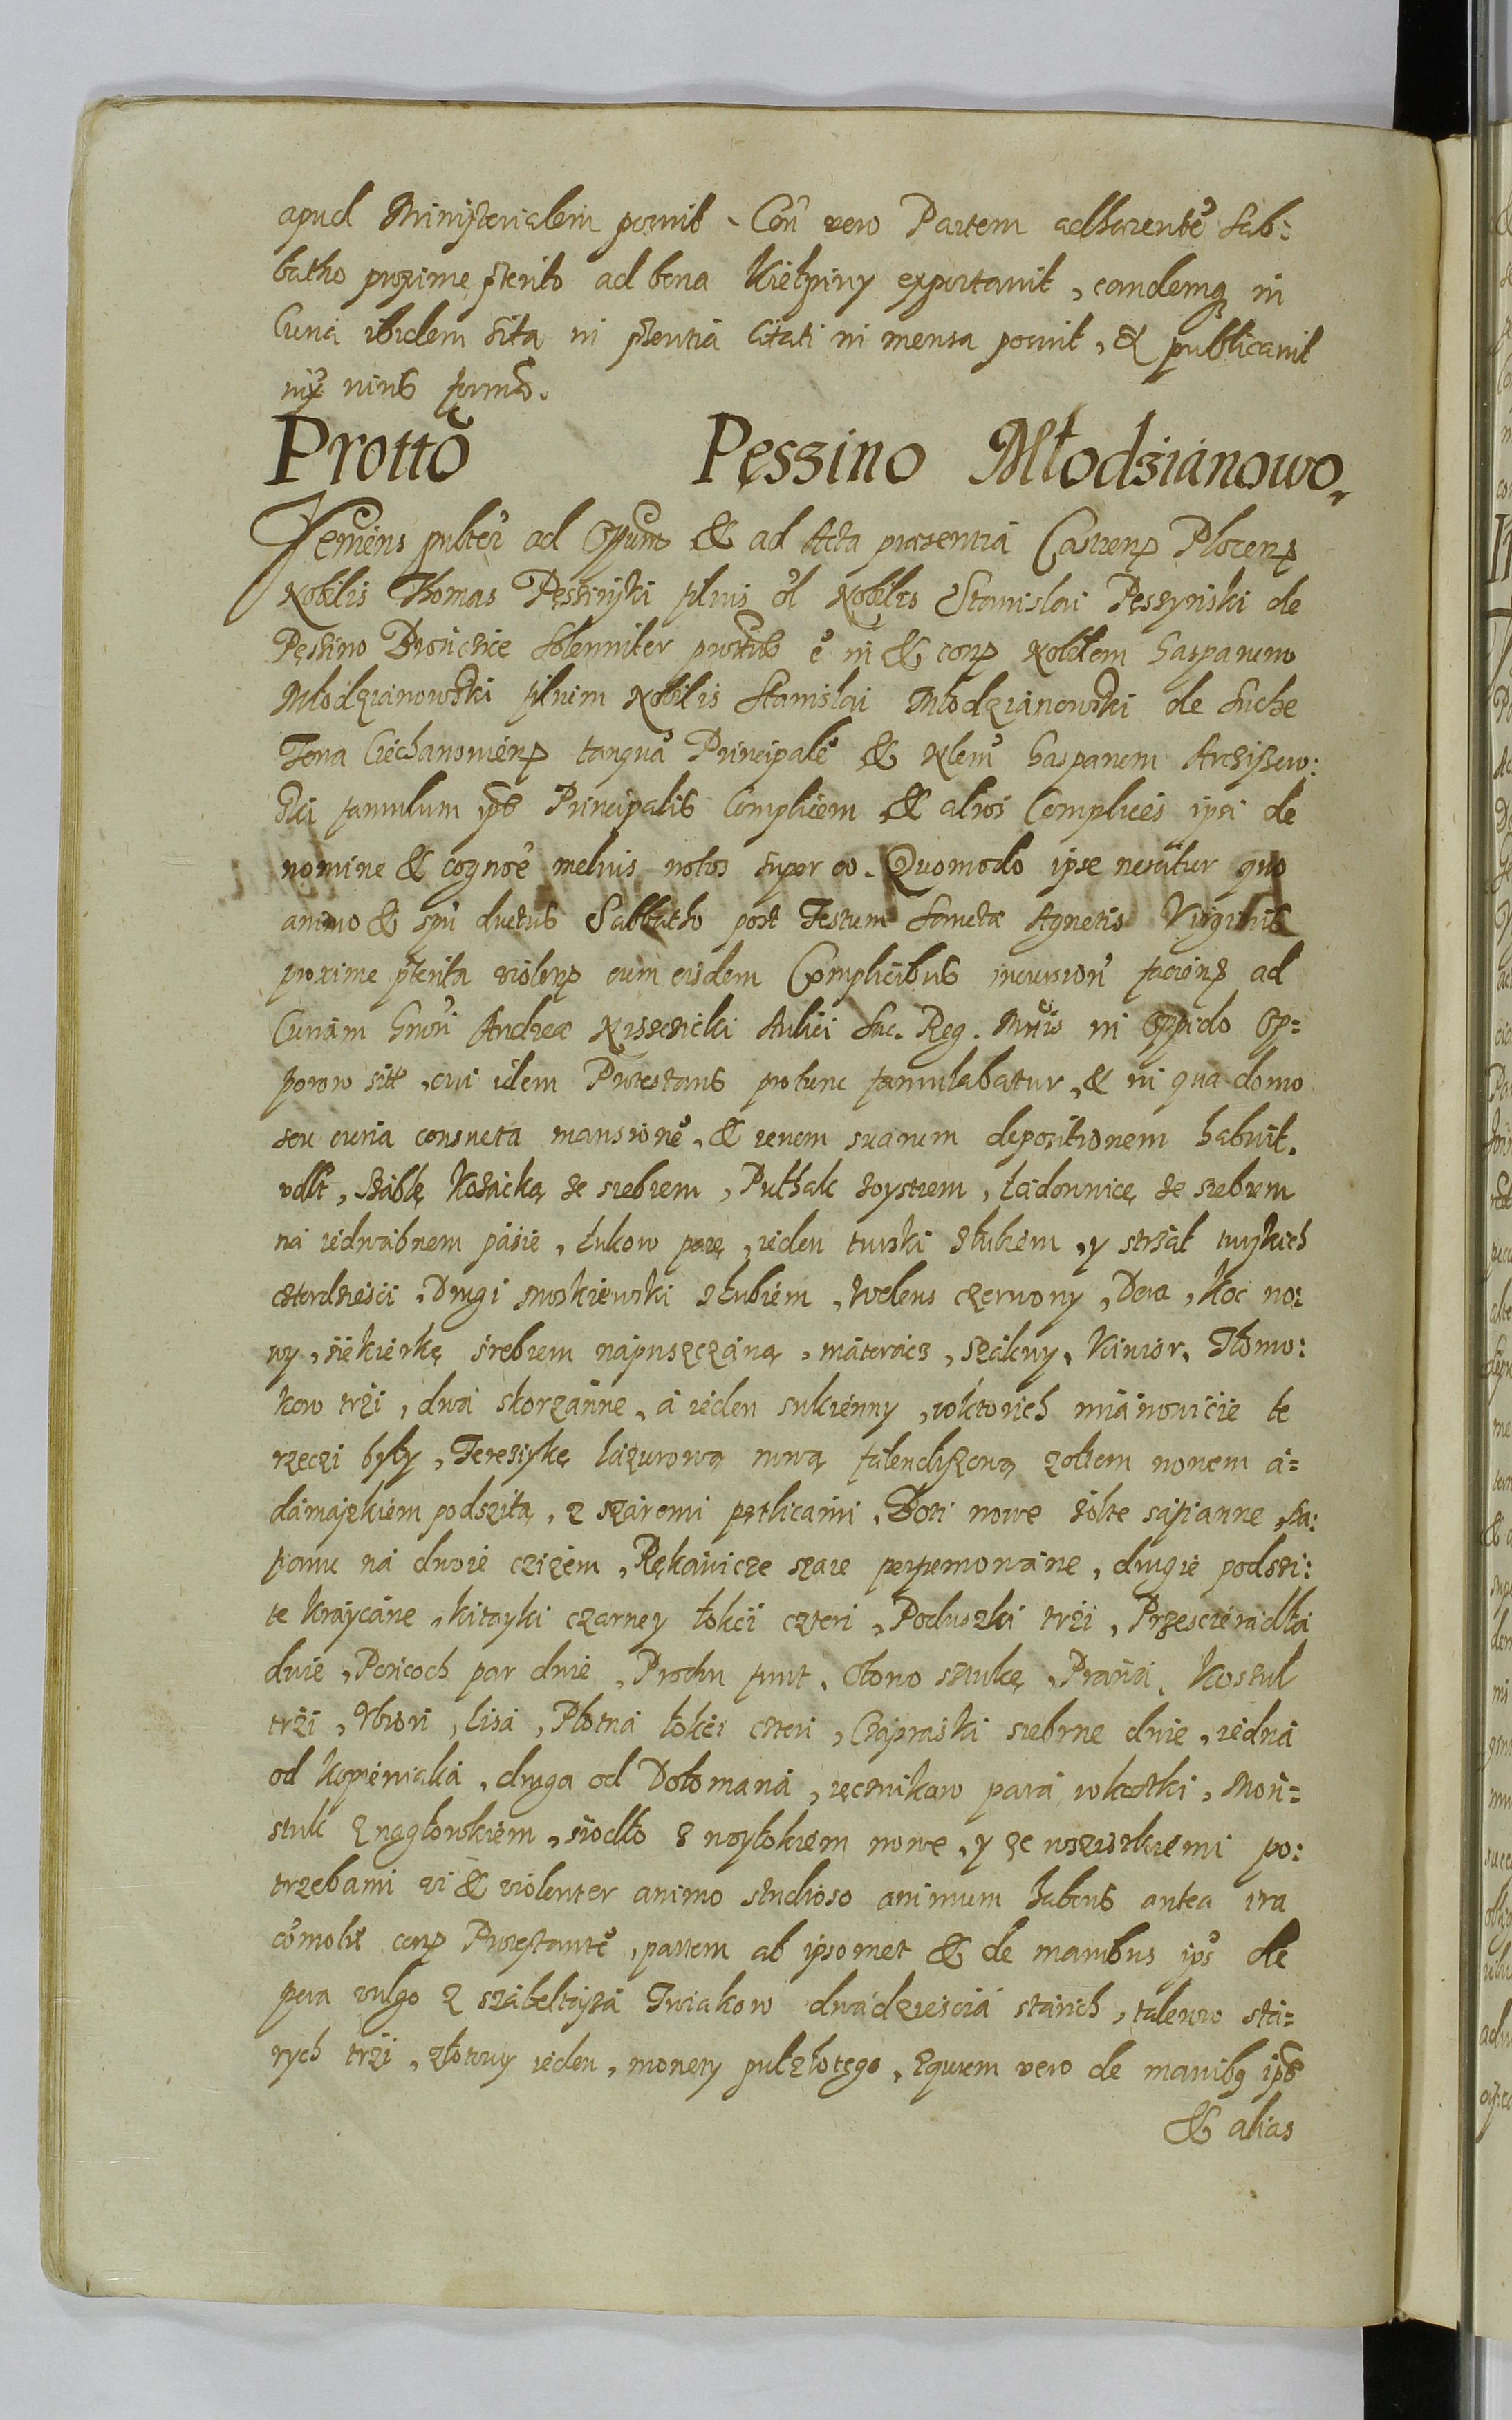 apud Ministerialem posuit. Con̄ vero Partem adharentē Sab:
batho proxime pͭterito ad bona Kiełpiny exportavit, eandemq in
Curia ibidem sita in pͭsentia Citati in mensa posuit, & publicavit
iux vim formā.
Prottō Pęszino Młodzianowo.
Veniens pulter ad Offum & ad Acta præsentia Castren Plocen
Nobilis Thomas Pęszinski filius ol Nobilis Stanislai Pęszynski de
Pęszino Dzonicsice solenniter protus ē in & con Nobilem Gasparem
Młodzianowski filium Nobilis Stanislai Młodzianowski de Suche
Terra Ciechanovien tanquā Principalē & Nlem Gasparem Arciszew:
ski famulum ips Principalis Complicem & alios Complices ipsi de
nomine & cognoē melius notos super eo. Quomodo ipse nescitur quo
animo & spu ductus Sabbatho post Festum Sanctæ Agnetis Virginis
proxime pͭterita violen cum eisdem Complicibus incursion faciens ad
Curiam Gnosi Andreæ Nissczicki Aulici Sac. Reg. Mtis in Oppido Op=
porow sitt, cui idem Protestans protunc famulabatur, & in qua domo
seu curia consueta mansionē, & rerum suarum depositionem habuit.
vdlt, szablę Kozacką ze srebrem, Puthak soystrem, ładownicę ze srebrem
na iedwabnem pasie, Łukow parę, ieden turski słubiem, y strzał turskich
czterdziesci, Drugi moskiewski słubiem, Welens czerwony, Dera, Koc no:
wy, siekierkę srebrem napuszczaną, materacz, szaliny, Kinior, Tłomo:
kow trzi, dwa skorzanne, a ieden sukienny, wktorich mianowicie te
rzeczi były, Fereziykę lazurową nową falendyszową zołtem nowem a=
damaszkiem podszitą, z szaremi pętlicami, Boti nowe żółte safianne, Sa:
fianu na dwoie cziżem, Rękawicze szare perfumowane, drugie podszi:
te kraycane, kitayki czarney łokci czteri, Poduszki trzi, Przescieradła
dwie, Ponczoch par dwie, Prochu funt, Ołowo sztukę, Pranzi, Koszul
trzi, Vbiori, lisa, Płotna łokci czteri, Czapraski srebrne dwie, iedna
od kopieniaka, druga od Dołomana, ręcznikow para wkostki, Mon=
stuk z nagłowkiem, siodło z woyłokiem nowe, y ze wszistkiemi po:
trzebami vi & violenter animo studioso animum habens antea ira
comotū con Protestantē, partem ab ipsomet & de manibus ips de
pera vulgo z szabeltasza Troiakow dwadziescia starich, talerow sta=
rych trzi, złotowy ieden, monety pulzłotego, Equum vero de manibq ips
& alias